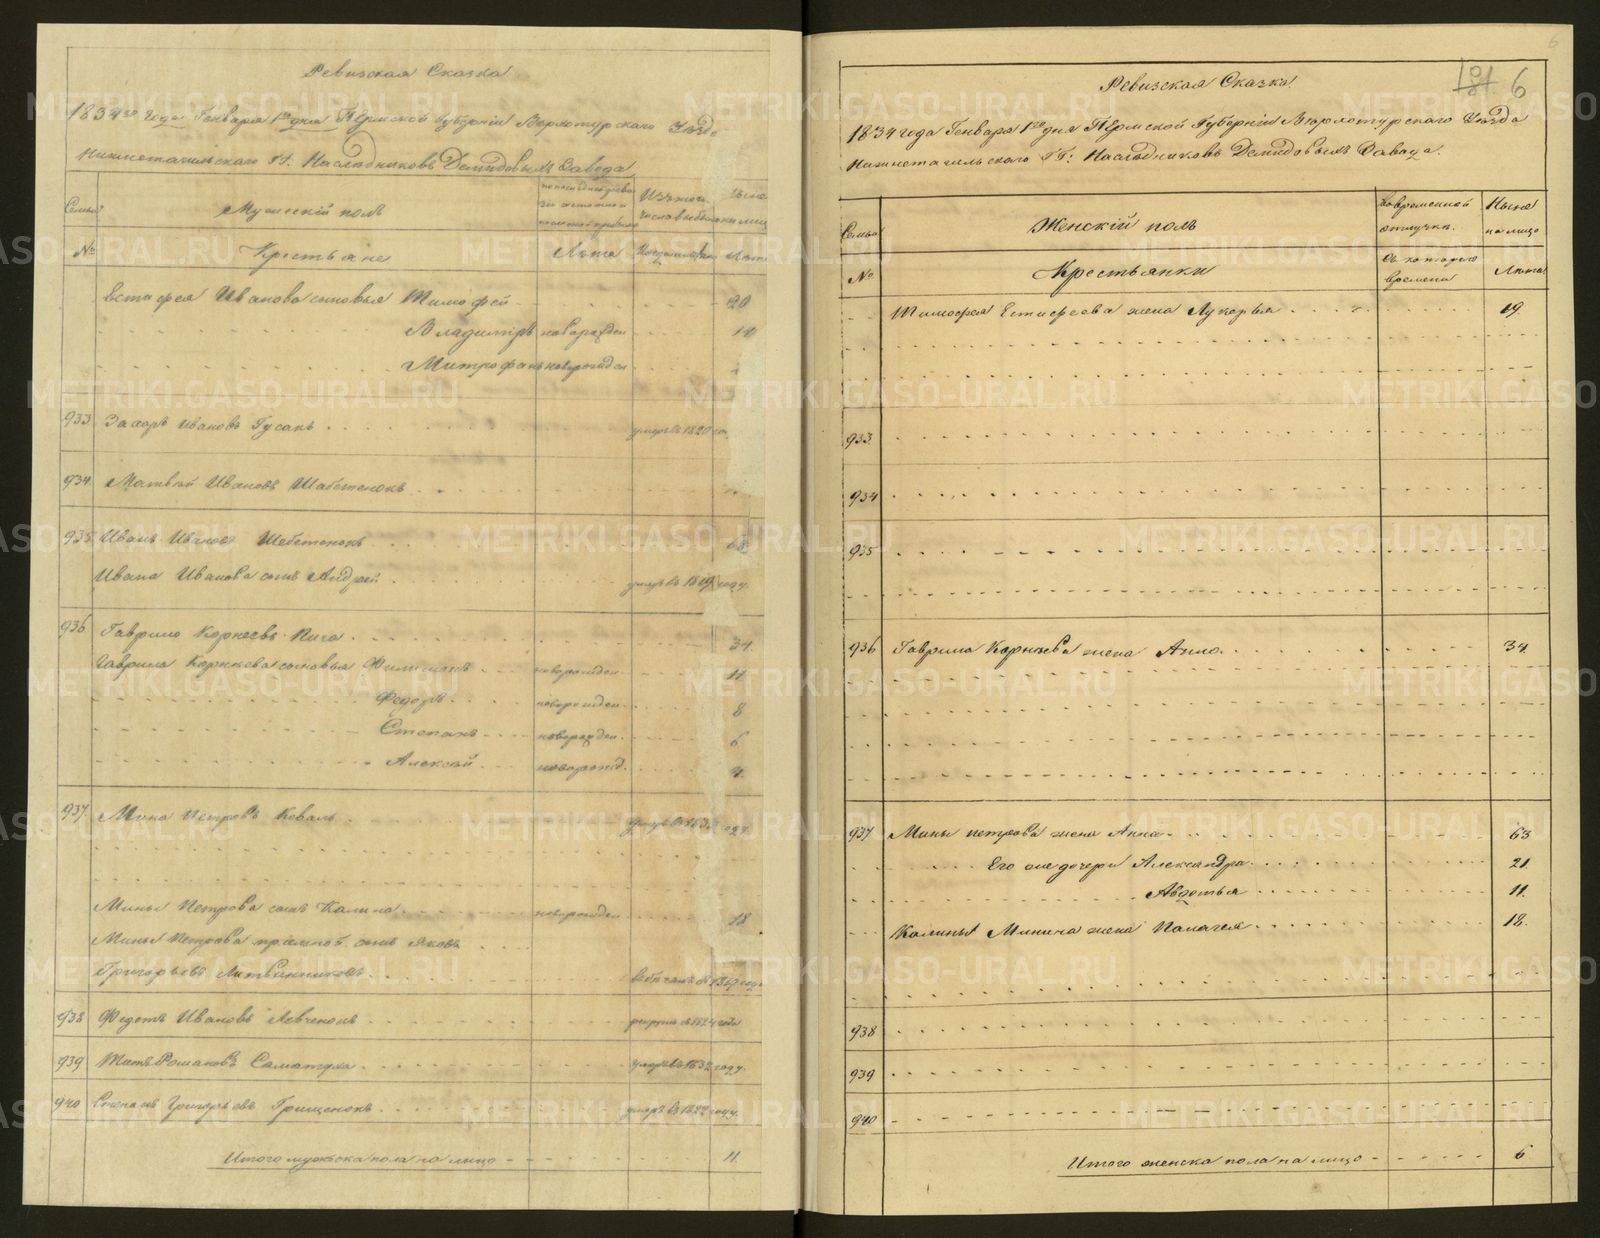 Ревизская Сказка
1834го года Генваря 1го дня Пермской Губерніи Верхотурскаго Уѣзда
Нижнетагильскаго ГГ. Наслѣдниковъ Демидовыхъ Завода
Семьи
Мужескій полъ
Изъ того числа выбыло
Ныне на лицо
№
Крестьяне
Лѣта
Лѣта
Естафея Иванова сыновья Тимофей 20
Владимиръ новорожден
Митрофанъ новорожден
933 Захаръ Ивановъ Гусакъ умеръ въ 1820 го
934 Матвей Ивановъ Шабетенокъ
935 Иванъ Ивановъ Шебетенокъ
Ивана Иванова сынъ Андрей умеръ въ 1819 году.
936 Гаврило Корнеевъ Пига 34
Гаврила Корнеева сыновья Филимонъ новорожден 11
Федоръ новорожден 8
Степанъ новорожден. 6
Алексей новорожд. 4
937 Мина Петровъ Коваль
Мины Петрова сынъ Калина новорожден 18
Мины Петрова пріемной сынъ Яковъ
Григорьевъ Литвинниковъ
938 Федотъ Ивановъ Левченокъ рекрутъ въ 1824 году
939 Титъ Романовъ Саматуга умеръ въ 1832 году
940 Степанъ Григорьевъ Грищенокъ умеръ въ 1822 году.
Итого мужеска пола на лицо 11
6
181. 6
Ревизская Сказка.
1834 года Генваря 1го дня Пермской Губерніи Верхотурскаго Уѣзда
Нижнетагильскаго ГГ: Наслѣдниковъ Демидовыхъ Завода.
Семьи
Женскій полъ
Во временной отлучкѣ.
Ныне на лицо
№
Крестьянки
Съ котораго времени
Лѣта
Тимофея Естифеева жена Лукарья 19.
933.
934
935
936 Гаврила Корнѣева жена Анна 34
937 Мины Петрова жена Анна 63
Его же дочери Александра 21
Авдотья 11.
Калины Минича жена Палагея 18.
938
939
940
Итого женска пола на лицо 6
METRIKI.GASO-URAL.RU